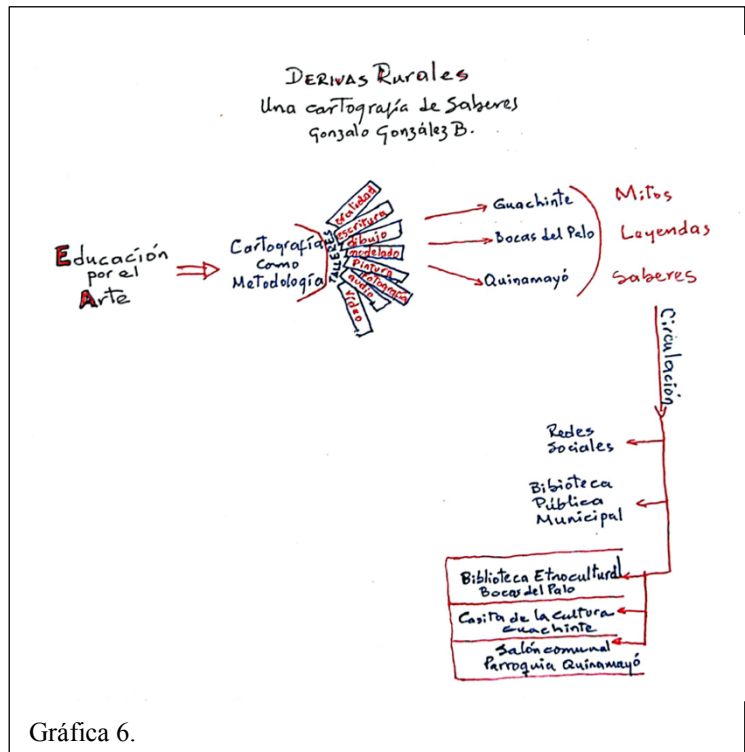 DERIVAS Rurales
Una cartografía de Saberes
Gonzalo González B.
Educación
por el
Arte
Cartografía
como
Metodología
TALLERES
oralidad
escritura
dibujo
modelado
pintura
fotografía
audio
video
Guachinte
Bocas del Palo
Quinamayó
Mitos
Leyendas
Saberes
Circulación
Redes
Sociales
Bibioteca
Pública
Municipal
Biblioteca Etnocultural
Bocas del Palo
Casita de la Cultura
Guachinte
Salón comunal
Parroquia Quinamayó
Gráfica 6.